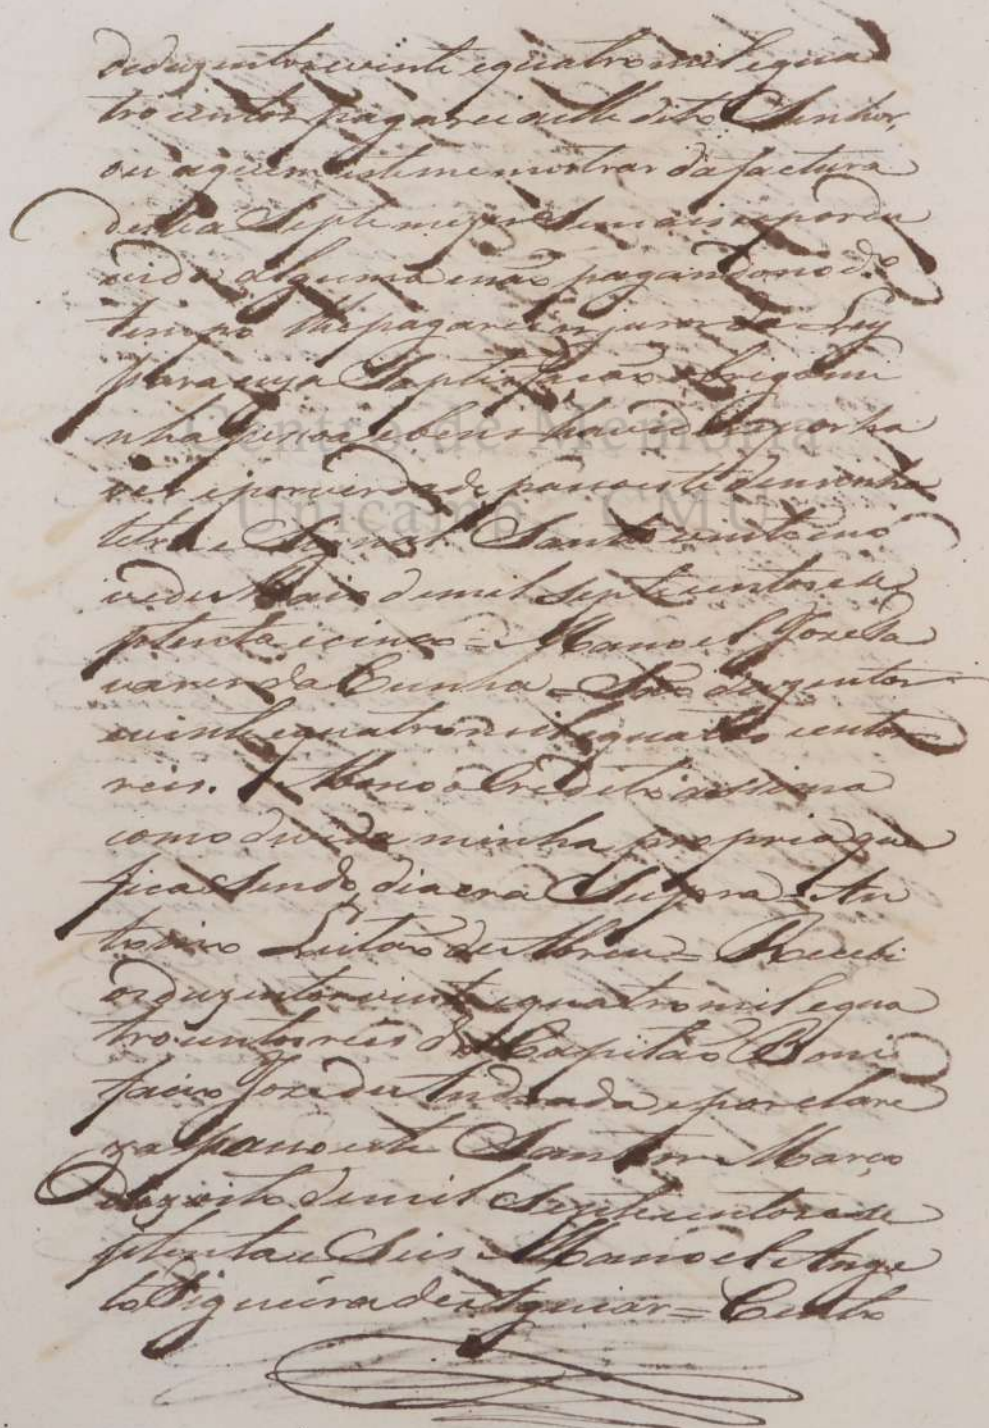 deduzentos evinte equatro mil equa
trocentos pagarei aelle dito Senhor,
ou aquem este me mostrar da factura
deste a Septe mezes Sem aisso por du
vida alguma enaõ pagando no d.º
tempo lhe pagarei juros da Ley
para cuja Saptisfacaõ obrigo mi
nha pesoa, ebens havidos, epor ha
ver epor verdade passo este de minha
letra e Signal. Santos vinte eno
ve de Maio de mil Septecentos ese
ptenta e cinco = Manoel Joze Ta
vares da Cunha = Saõ duzentos
evinte equatro mil equatro centos
reis. Abono o Credito assima
como divida minha propria que
fica Sendo, dia era Supra = An
tonio Leitaõ de Abreu = Recebi
os duzentos evinte equatro mil equa
trocentos reis do Capitaõ Boni
facio Joze de Andrada epor clare
za passo este Santos Março
dezoito de mil Septecentos ese
ptenta e Seis Manoel Ange
lo Figueira de Aguiar = Cento
Centro de Memória
Unicamp CMU